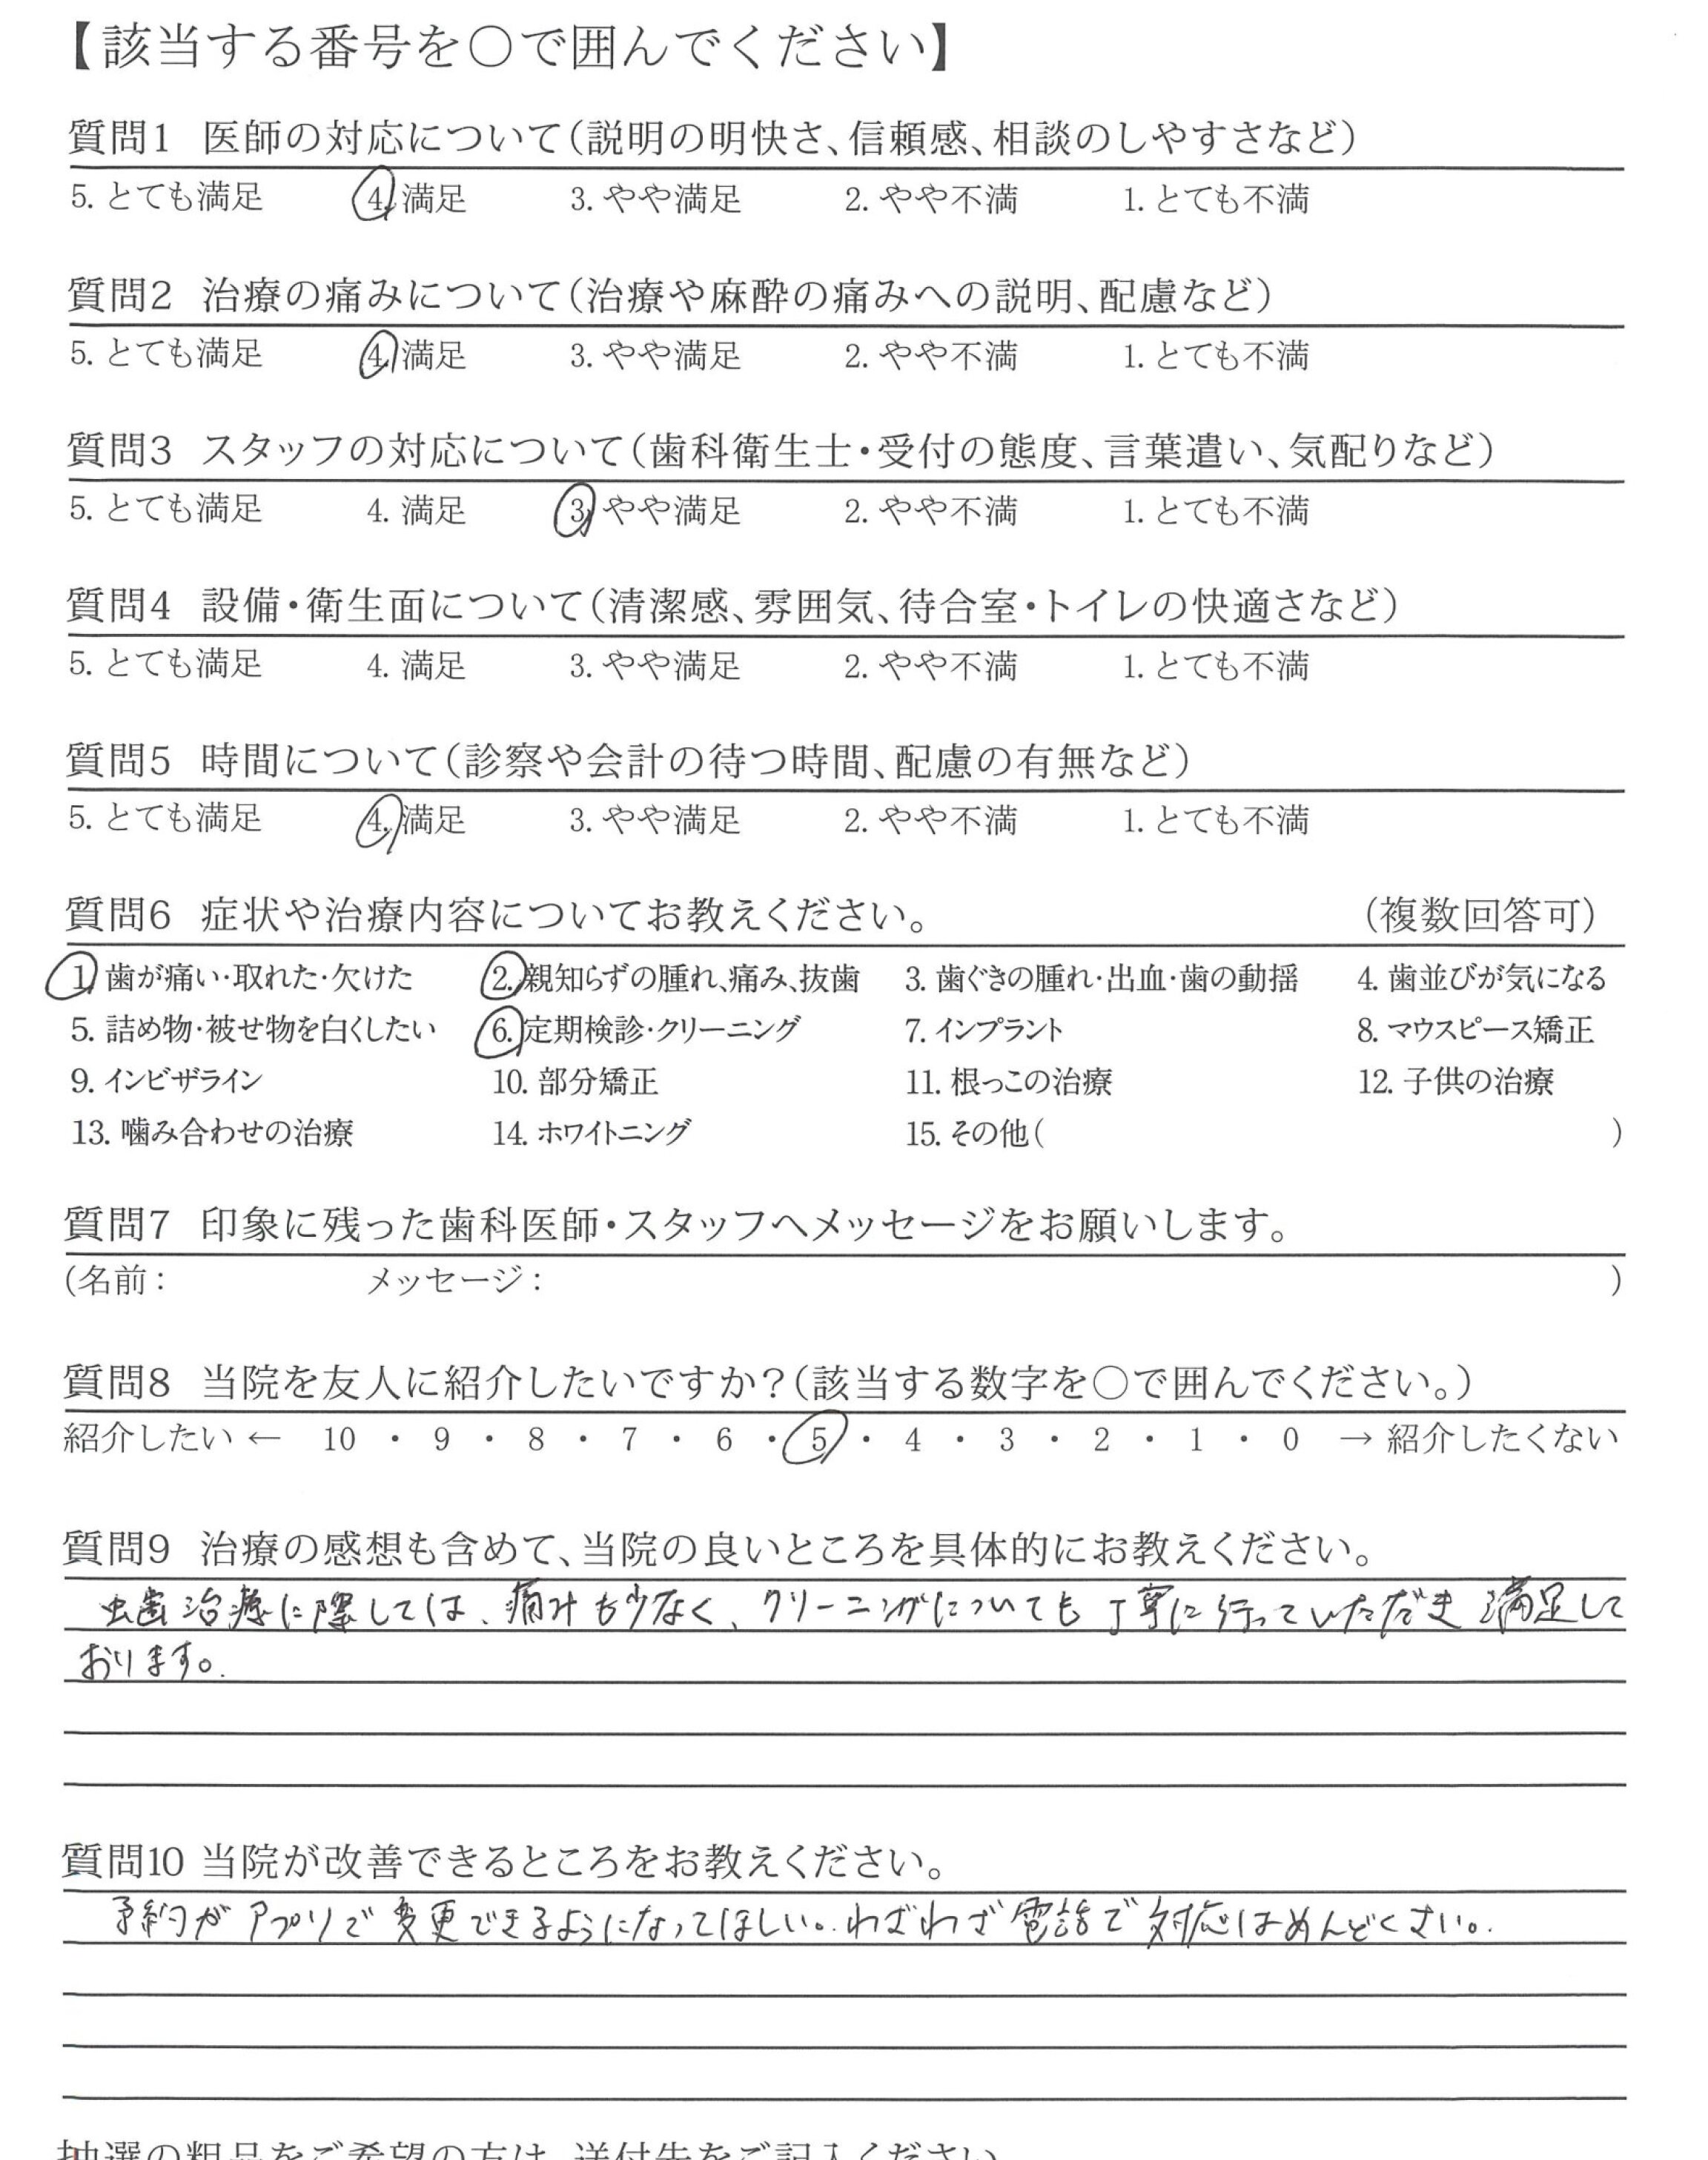 【該当する番号を○で囲んでください】
質問1 医師の対応について(説明の明快さ、信頼感、相談のしやすさなど)
5. とても満足 4. 満足 3. やや満足 2. やや不満 1. とても不満
質問2 治療の痛みについて(治療や麻酔の痛みへの説明、配慮など)
5. とても満足 4. 満足 3. やや満足 2. やや不満 1. とても不満
質問3 スタッフの対応について(歯科衛生士・受付の態度、言葉遣い、気配りなど)
5. とても満足 4. 満足 3. やや満足 2. やや不満 1. とても不満
質問4 設備・衛生面について(清潔感、雰囲気、待合室・トイレの快適さなど)
5. とても満足 4. 満足 3. やや満足 2. やや不満 1. とても不満
質問5 時間について(診察や会計の待つ時間、配慮の有無など)
5. とても満足 4. 満足 3. やや満足 2. やや不満 1. とても不満
質問6 症状や治療内容についてお教えください。 (複数回答可)
1. 歯が痛い・取れた・欠けた 2. 親知らずの腫れ、痛み、抜歯 3. 歯ぐきの腫れ・出血・歯の動揺 4. 歯並びが気になる
5. 詰め物・被せ物を白くしたい 6. 定期検診・クリーニング 7. インプラント 8. マウスピース矯正
9. インビザライン 10. 部分矯正 11. 根っこの治療 12. 子供の治療
13. 噛み合わせの治療 14. ホワイトニング 15. その他( )
質問7 印象に残った歯科医師・スタッフへメッセージをお願いします。
(名前: メッセージ: )
質問8 当院を友人に紹介したいですか?(該当する数字を○で囲んでください。)
紹介したい ← 10 ・ 9 ・ 8 ・ 7 ・ 6 ・ 5 ・ 4 ・ 3 ・ 2 ・ 1 ・ 0 → 紹介したくない
質問9 治療の感想も含めて、当院の良いところを具体的にお教えください。
虫歯治療に際しては、痛みも少なく、クリーニングについても丁寧に行っていただき満足して
おります。
質問10 当院が改善できるところをお教えください。
予約がアプリで変更できるようになってほしい。わざわざ電話で対応はめんどくさい。
抽選の粗品をご希望の方は、送付先をご記入ください